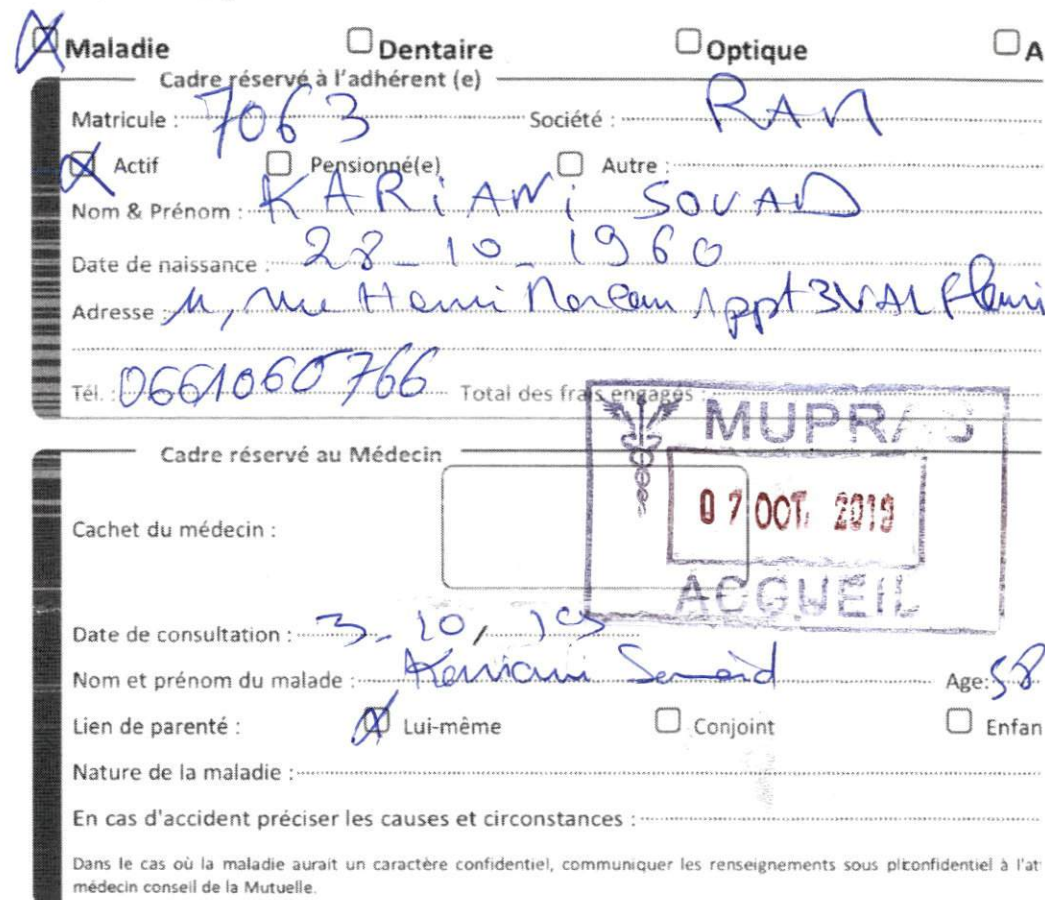 Maladie Dentaire Optique A
Cadre réservé à l'adhérent (e)
Matricule : 7063 Société : RAM
Actif Pensionné(e) Autre :
Nom & Prénom : KARIAMI SOUAD
Date de naissance : 28-10-1960
Adresse : 11, rue Henri Moreau Appt 3 VAL fleuri
Tél. : 0661060766 Total des frais engagés :
MUPRAS
Cadre réservé au Médecin
07 OCT. 2019
Cachet du médecin :
ACCUEIL
Date de consultation : 3-10, 19
Nom et prénom du malade : Kariami Souad Age: 58
Lien de parenté : Lui-même Conjoint Enfan
Nature de la maladie :
En cas d'accident préciser les causes et circonstances :
Dans le cas où la maladie aurait un caractère confidentiel, communiquer les renseignements sous pli confidentiel à l'at
médecin conseil de la Mutuelle.